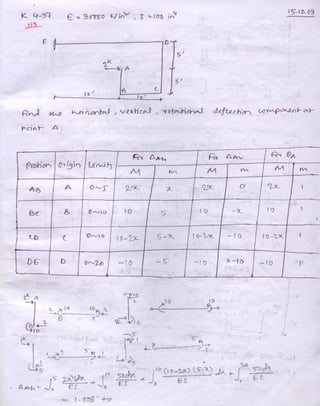 K 4-97. E = 30000 K/in², I = 100 in⁴
15.10.09
113
E
D
2ᴷ
A
5'
5'
B
C
10'
10'
Find the horizontal, vertical, rotational deflection component at
Point A.
Portion Origin Length For ΔAH For ΔAV For θA
M m M m M m
AB A 0~5 2x x 2x 0 2x 1
BC B 0~10 10 5 10 -x 10 1
CD C 0~10 10-2x 5-x 10-2x -10 10-2x 1
DE D 0~20 -10 -5 -10 x-10 -10
2ᴷ A
10
10
10
B
5
ΔAH = ∫₀⁵ 2x²dx/EI + ∫₀¹⁰ 50dx/EI + ∫₀¹⁰ (10-2x)(5-x)/EI dx + ∫₀²⁰ 50dx/EI
= 1.008"